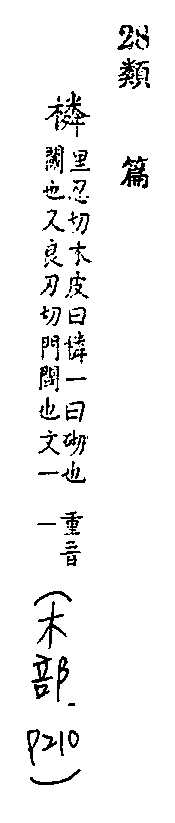 28類篇
橉
里忍切木皮曰橉一曰砌也
閫也又良刃切門閫也文一
重音一
(木部.P210)